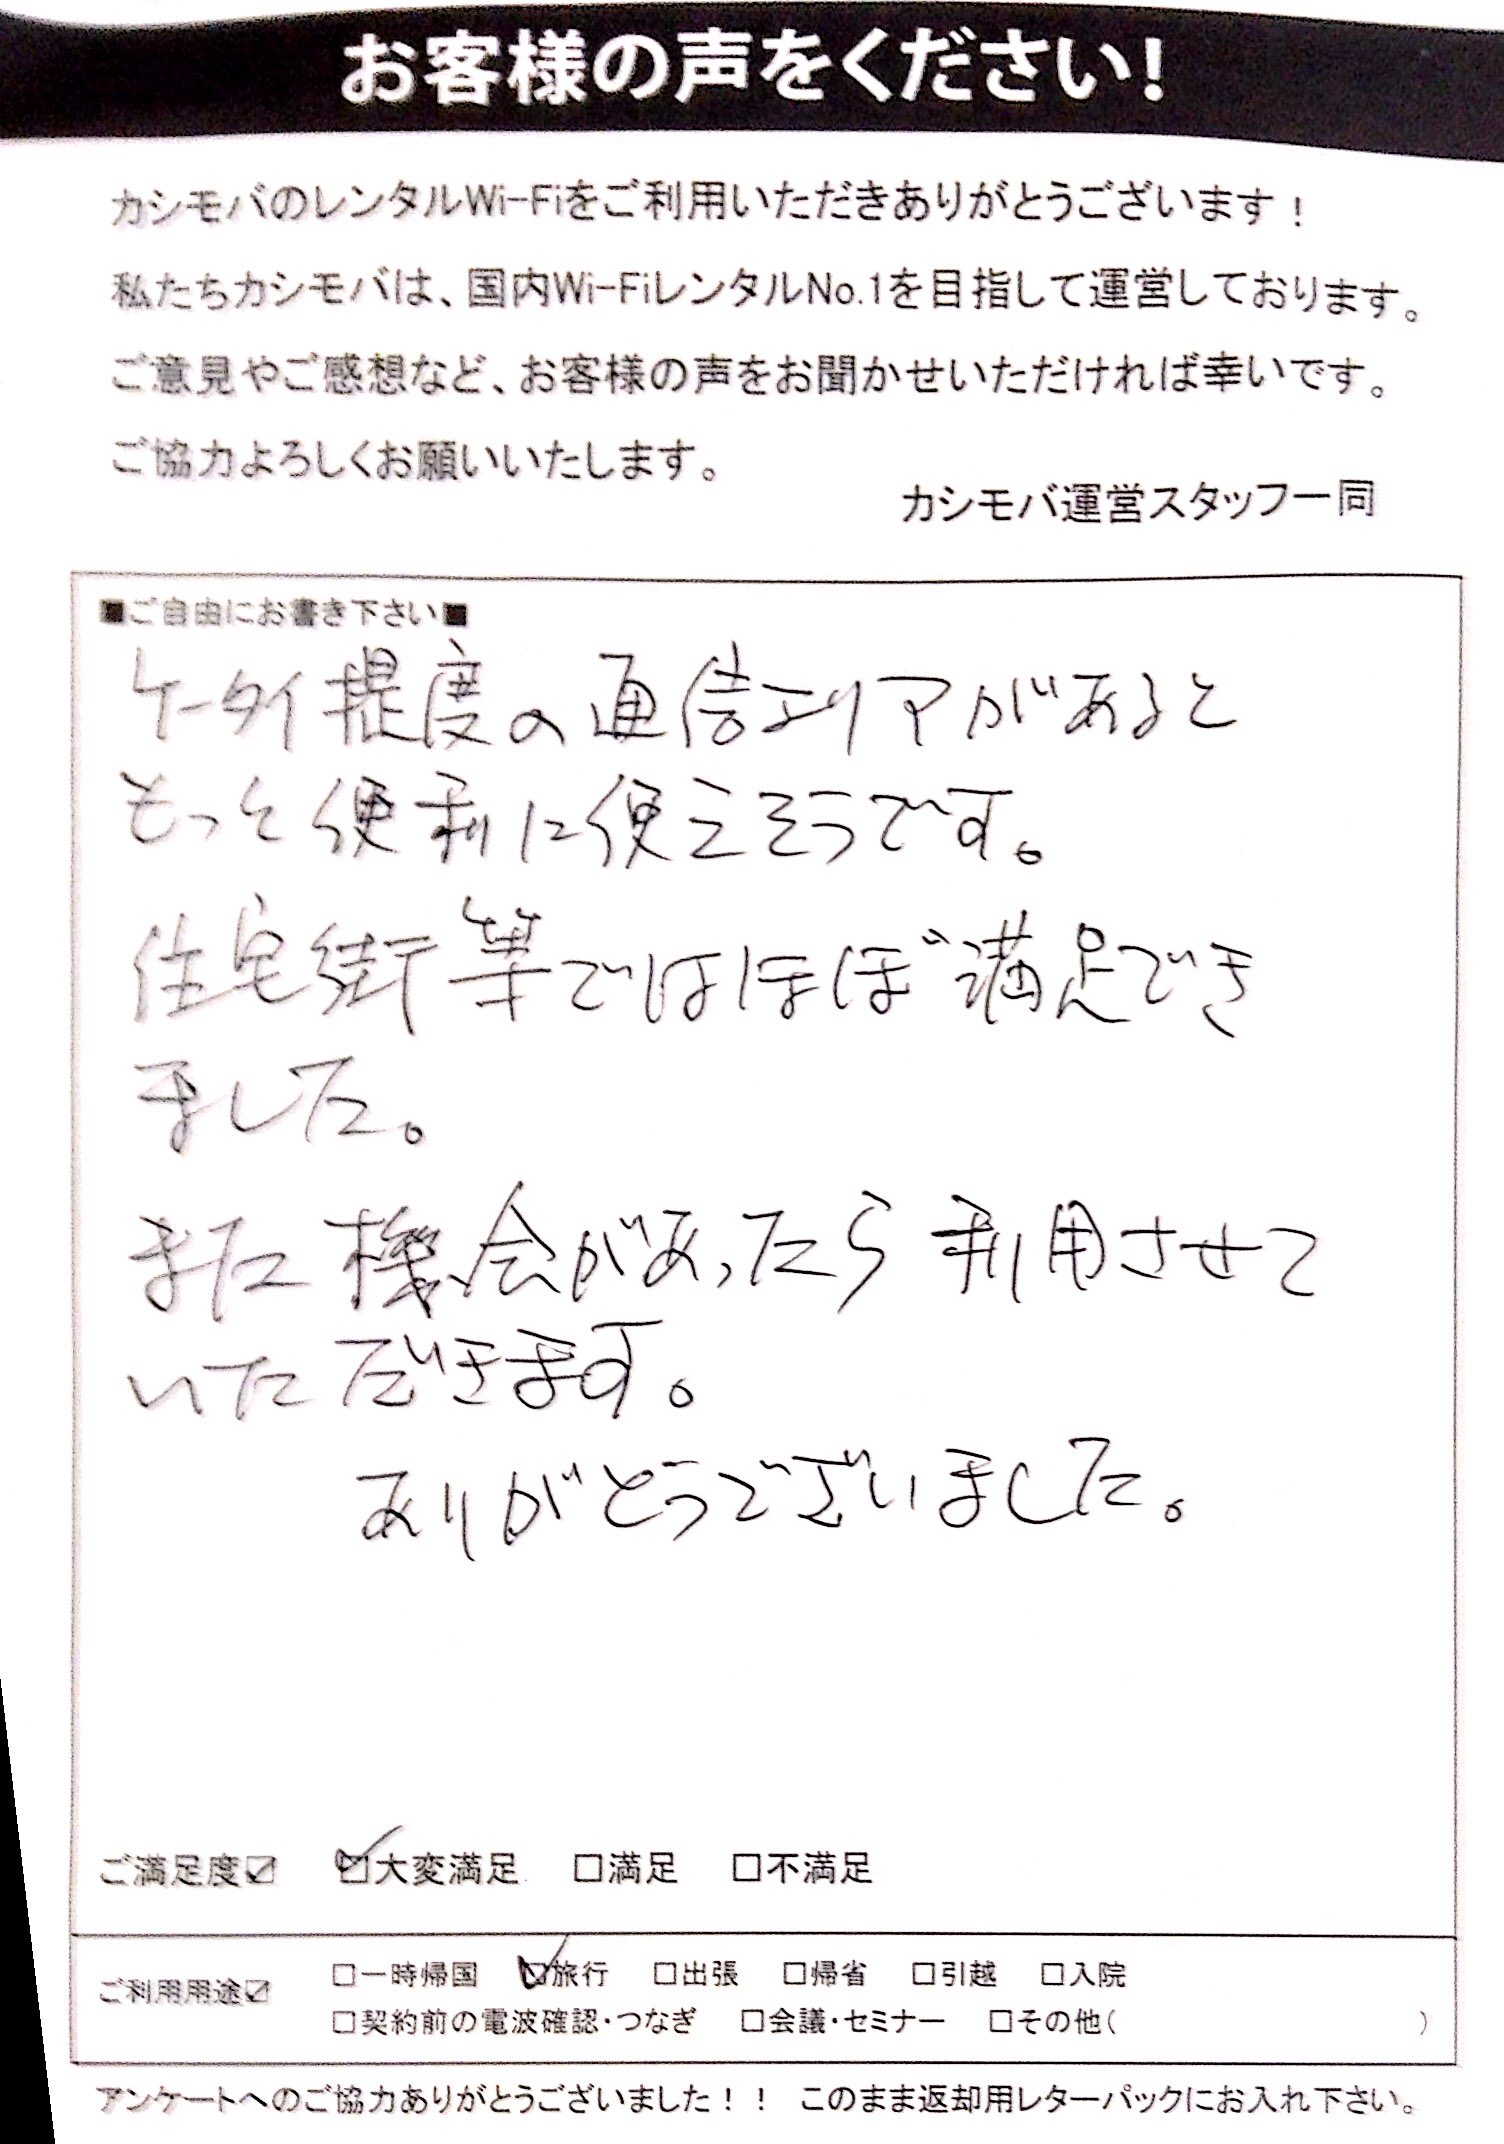 お客様の声をください!
カシモバのレンタルWi-Fiをご利用いただきありがとうございます!
私たちカシモバは、国内Wi-FiレンタルNo.1を目指して運営しております。
ご意見やご感想など、お客様の声をお聞かせいただければ幸いです。
ご協力よろしくお願いいたします。
カシモバ運営スタッフ一同
■ご自由にお書き下さい■
ケータイ提度の通信エリアがあると
もっと便利に使えそうです。
住宅街等ではほぼ満足でき
ました。
また機会があったら利用させて
いただきます。
ありがとうございました。
ご満足度☑ ☑大変満足 □満足 □不満足
ご利用用途☑ □一時帰国 ☑旅行 □出張 □帰省 □引越 □入院
□契約前の電波確認・つなぎ □会議・セミナー □その他( )
アンケートへのご協力ありがとうございました!! このまま返却用レターパックにお入れ下さい。